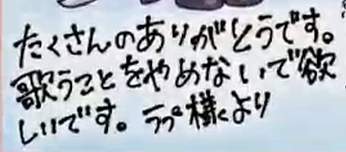 たくさんのありがとうです。
歌うことをやめないで欲
しいです。ラプ様より